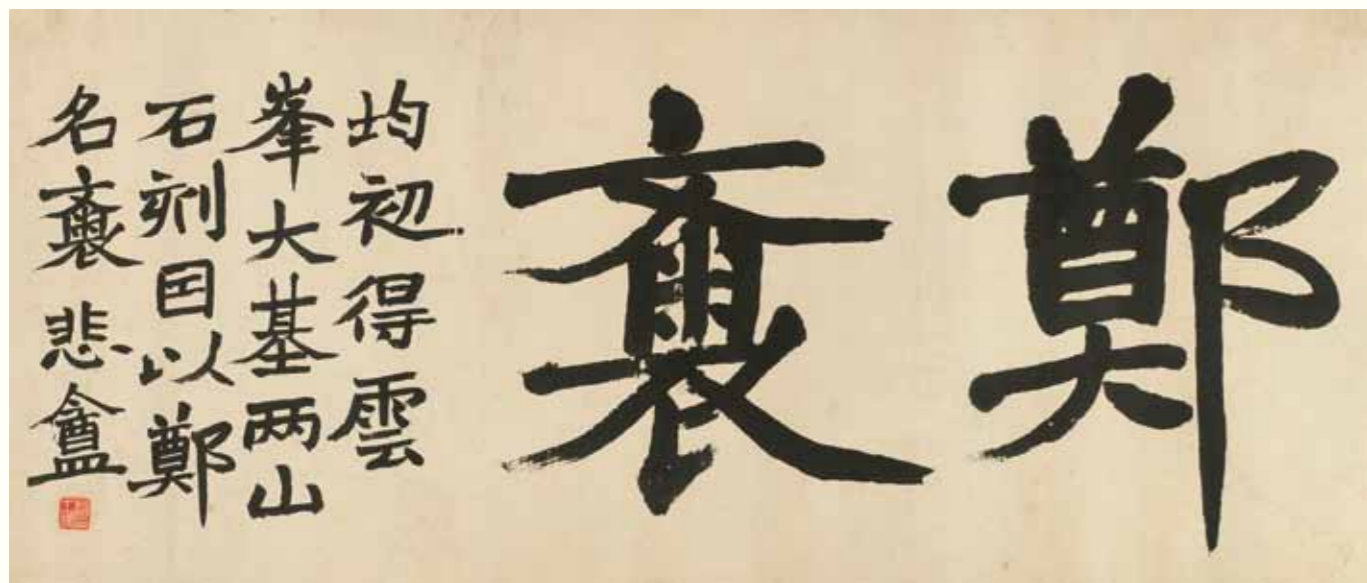 鄭齋
均初得雲
峯大基两山
石刻囙以鄭
名齋 悲盦